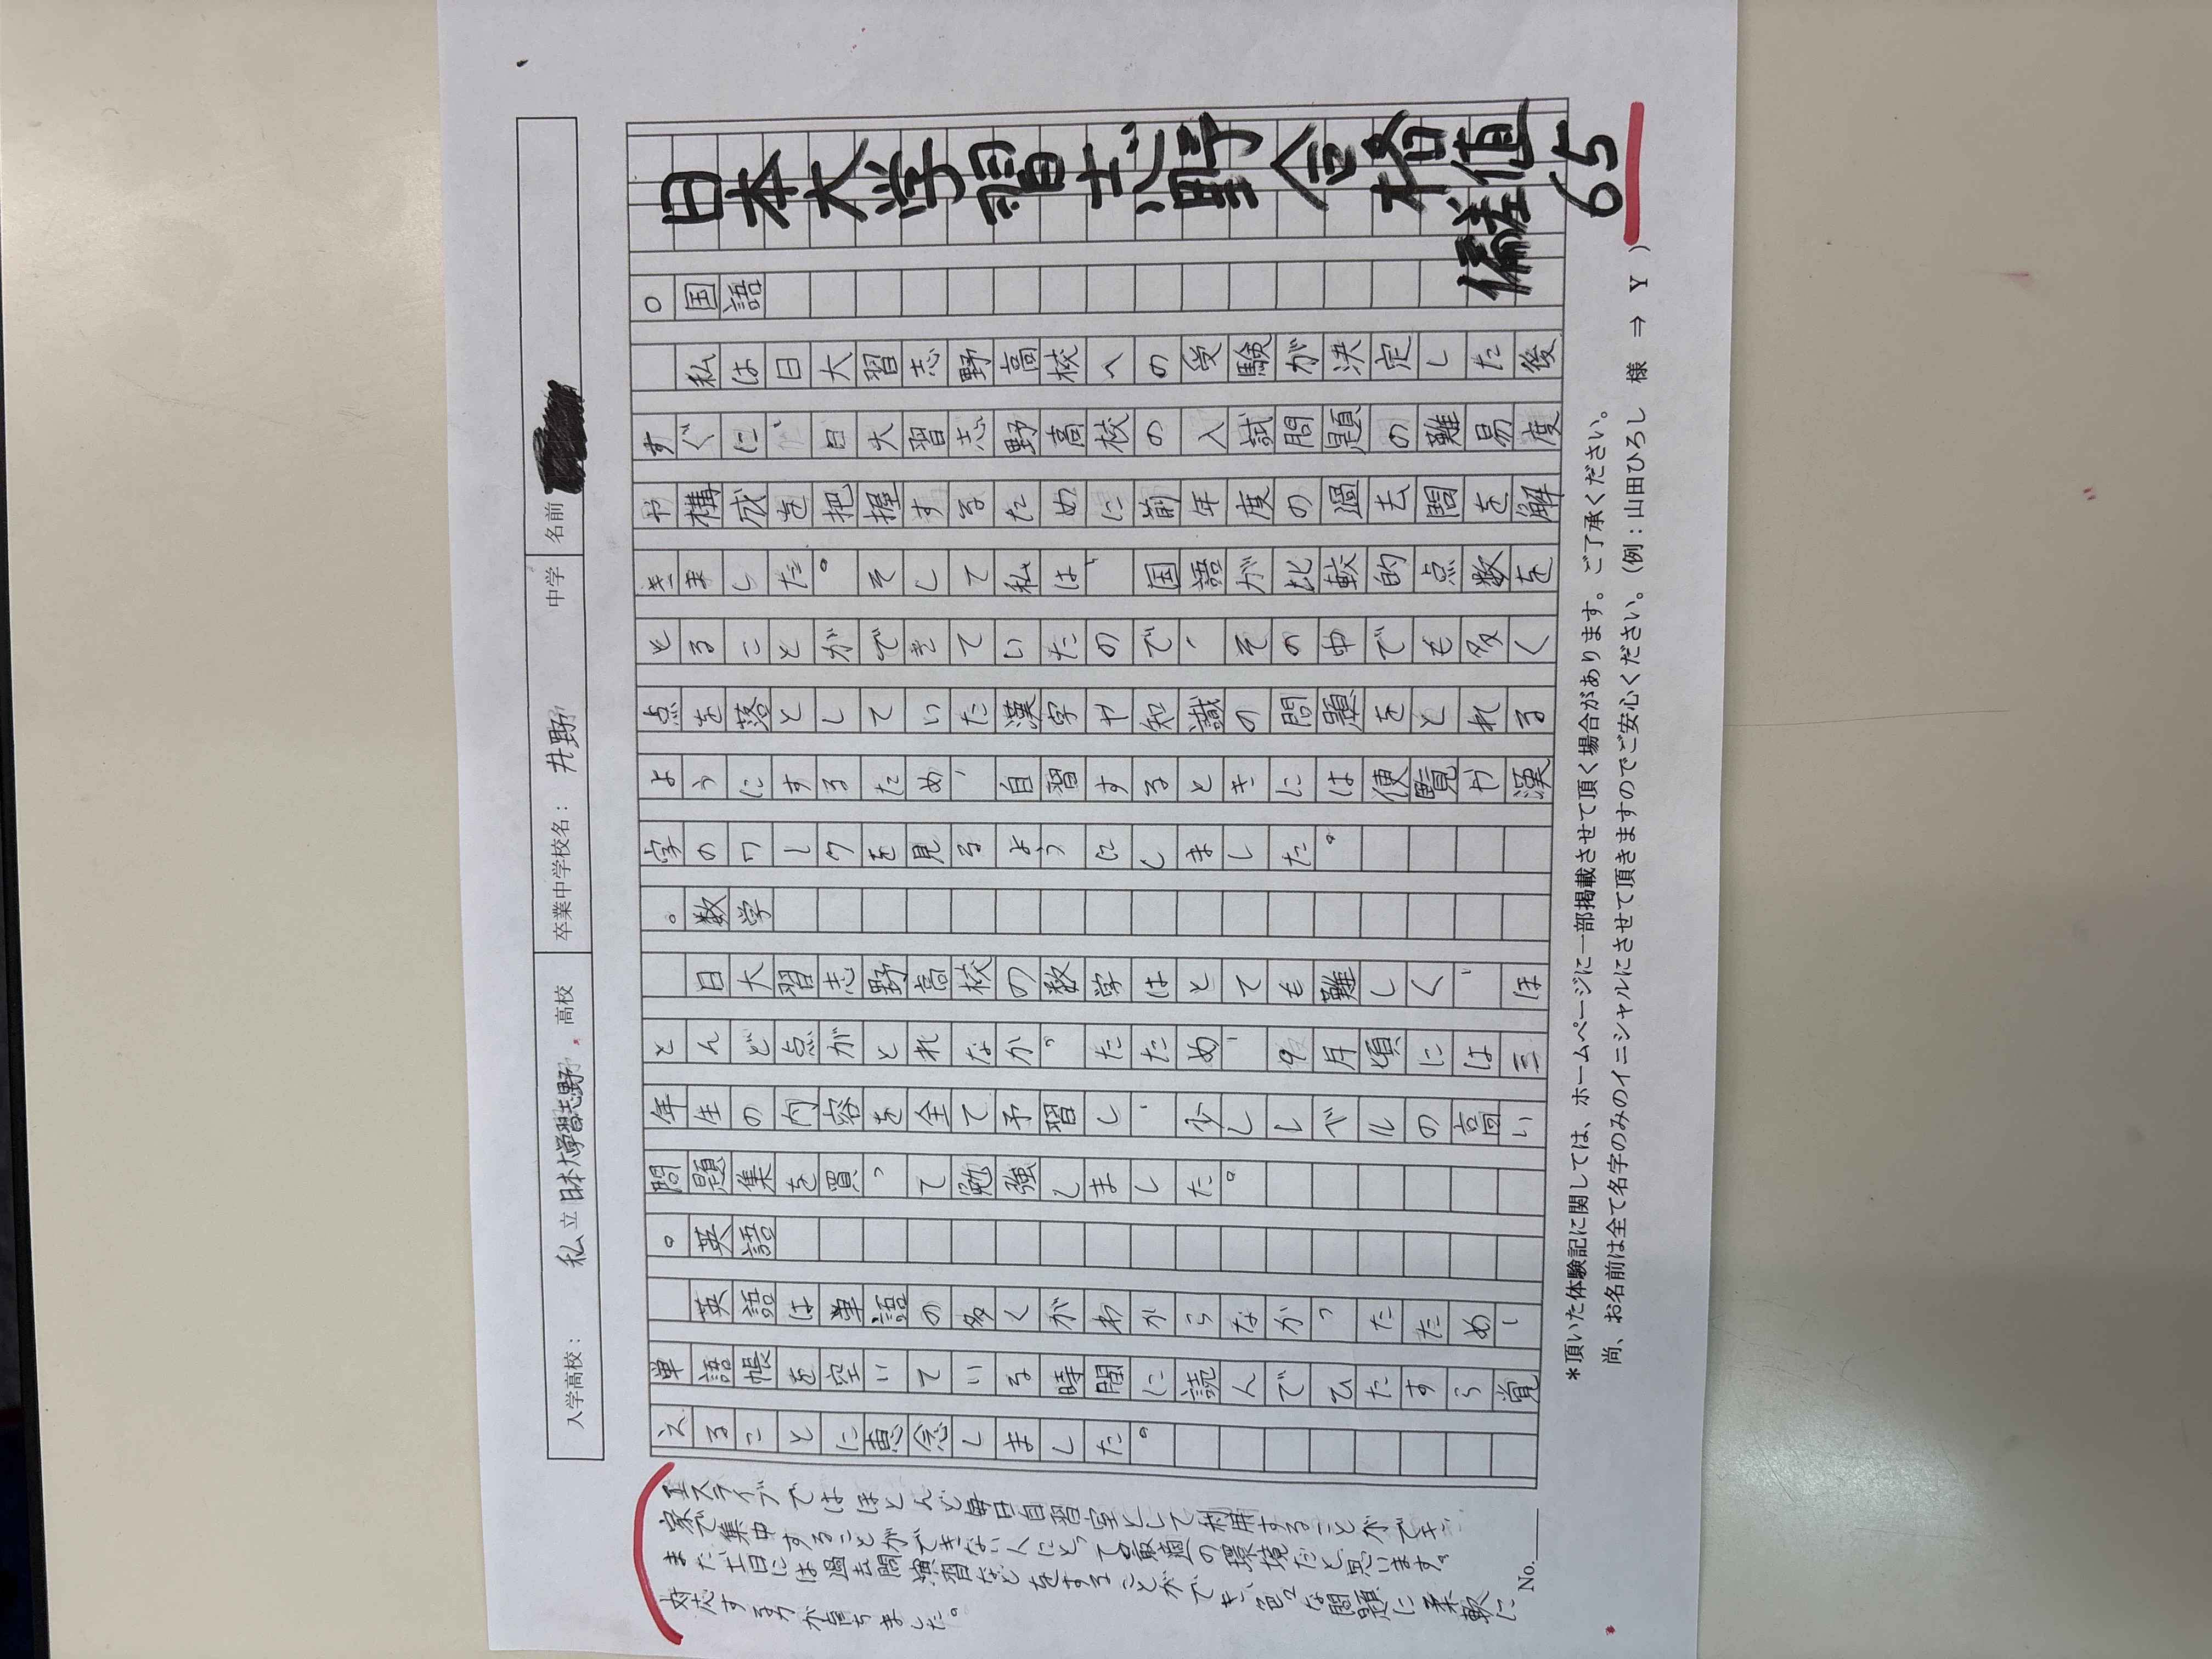 入学高校： 私立 日本大学習志野 高校 卒業中学校名： 井野 中学 名前
日本大学習志野合格
偏差値
65
○国語
私は日大習志野高校への受験が決定した後
すぐに、日大習志野高校の入試問題の難易度
や構成を把握するために前年度の過去問を解
きました。そして私は、国語が比較的点数を
とることができていたので、その中でも多く
点を落としていた漢字や知識の問題をとれる
ようにするため、自習するときには便覧や漢
字のワークを見るようにしました。
○数学
日大習志野高校の数学はとても難しく、ほ
とんど点がとれなかったため、9月頃には三
年生の内容を全て予習し、少しレベルの高い
問題集を買って勉強しました。
○英語
英語は単語の多くがわからなかったため、
単語帳を空いている時間に読んでひたすら覚
えることに専念しました。
エスライブではほとんど毎日自習室として利用することができ、
家で集中することができない人にとって最適の環境だと思います。
また、土日には過去問演習などをすることができ、色々な問題に柔軟に
対応する力が育ちました。
No.
＊頂いた体験記に関しては、ホームページに一部掲載させて頂く場合があります。ご了承ください。
尚、お名前は全て名字のみのイニシャルにさせて頂きますのでご安心ください。（例：山田ひろし 様 ⇒ Y ）